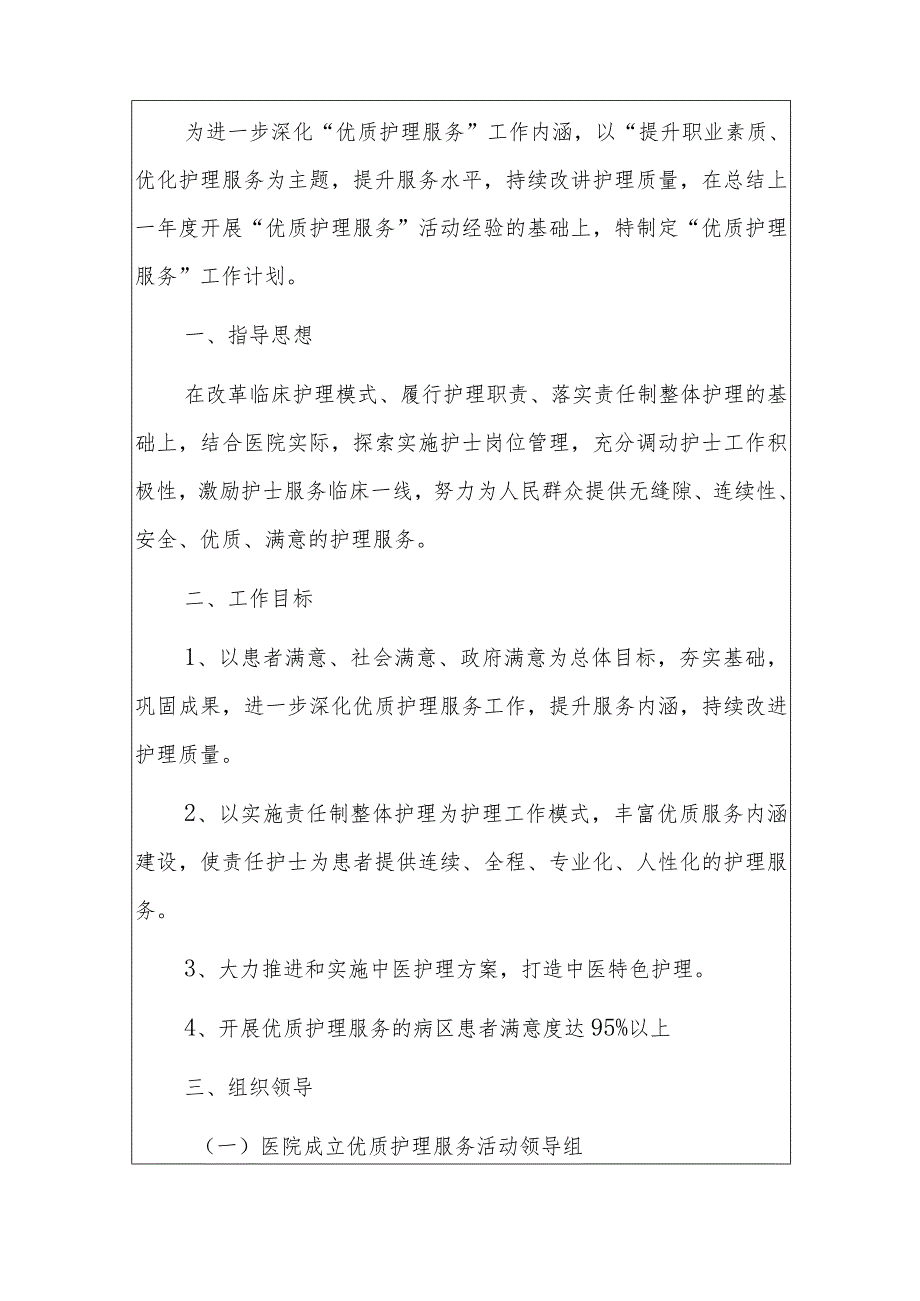 为进一步深化“优质护理服务”工作内涵，以“提升职业素质、
优化护理服务为主题，提升服务水平，持续改讲护理质量，在总结上
一年度开展“优质护理服务”活动经验的基础上，特制定“优质护理
服务”工作计划。
一、指导思想
在改革临床护理模式、履行护理职责、落实责任制整体护理的基
础上，结合医院实际，探索实施护士岗位管理，充分调动护士工作积
极性，激励护士服务临床一线，努力为人民群众提供无缝隙、连续性、
安全、优质、满意的护理服务。
二、工作目标
1、以患者满意、社会满意、政府满意为总体目标，夯实基础，
巩固成果，进一步深化优质护理服务工作，提升服务内涵，持续改进
护理质量。
2、以实施责任制整体护理为护理工作模式，丰富优质服务内涵
建设，使责任护士为患者提供连续、全程、专业化、人性化的护理服
务。
3、大力推进和实施中医护理方案，打造中医特色护理。
4、开展优质护理服务的病区患者满意度达 95%以上
三、组织领导
（一）医院成立优质护理服务活动领导组